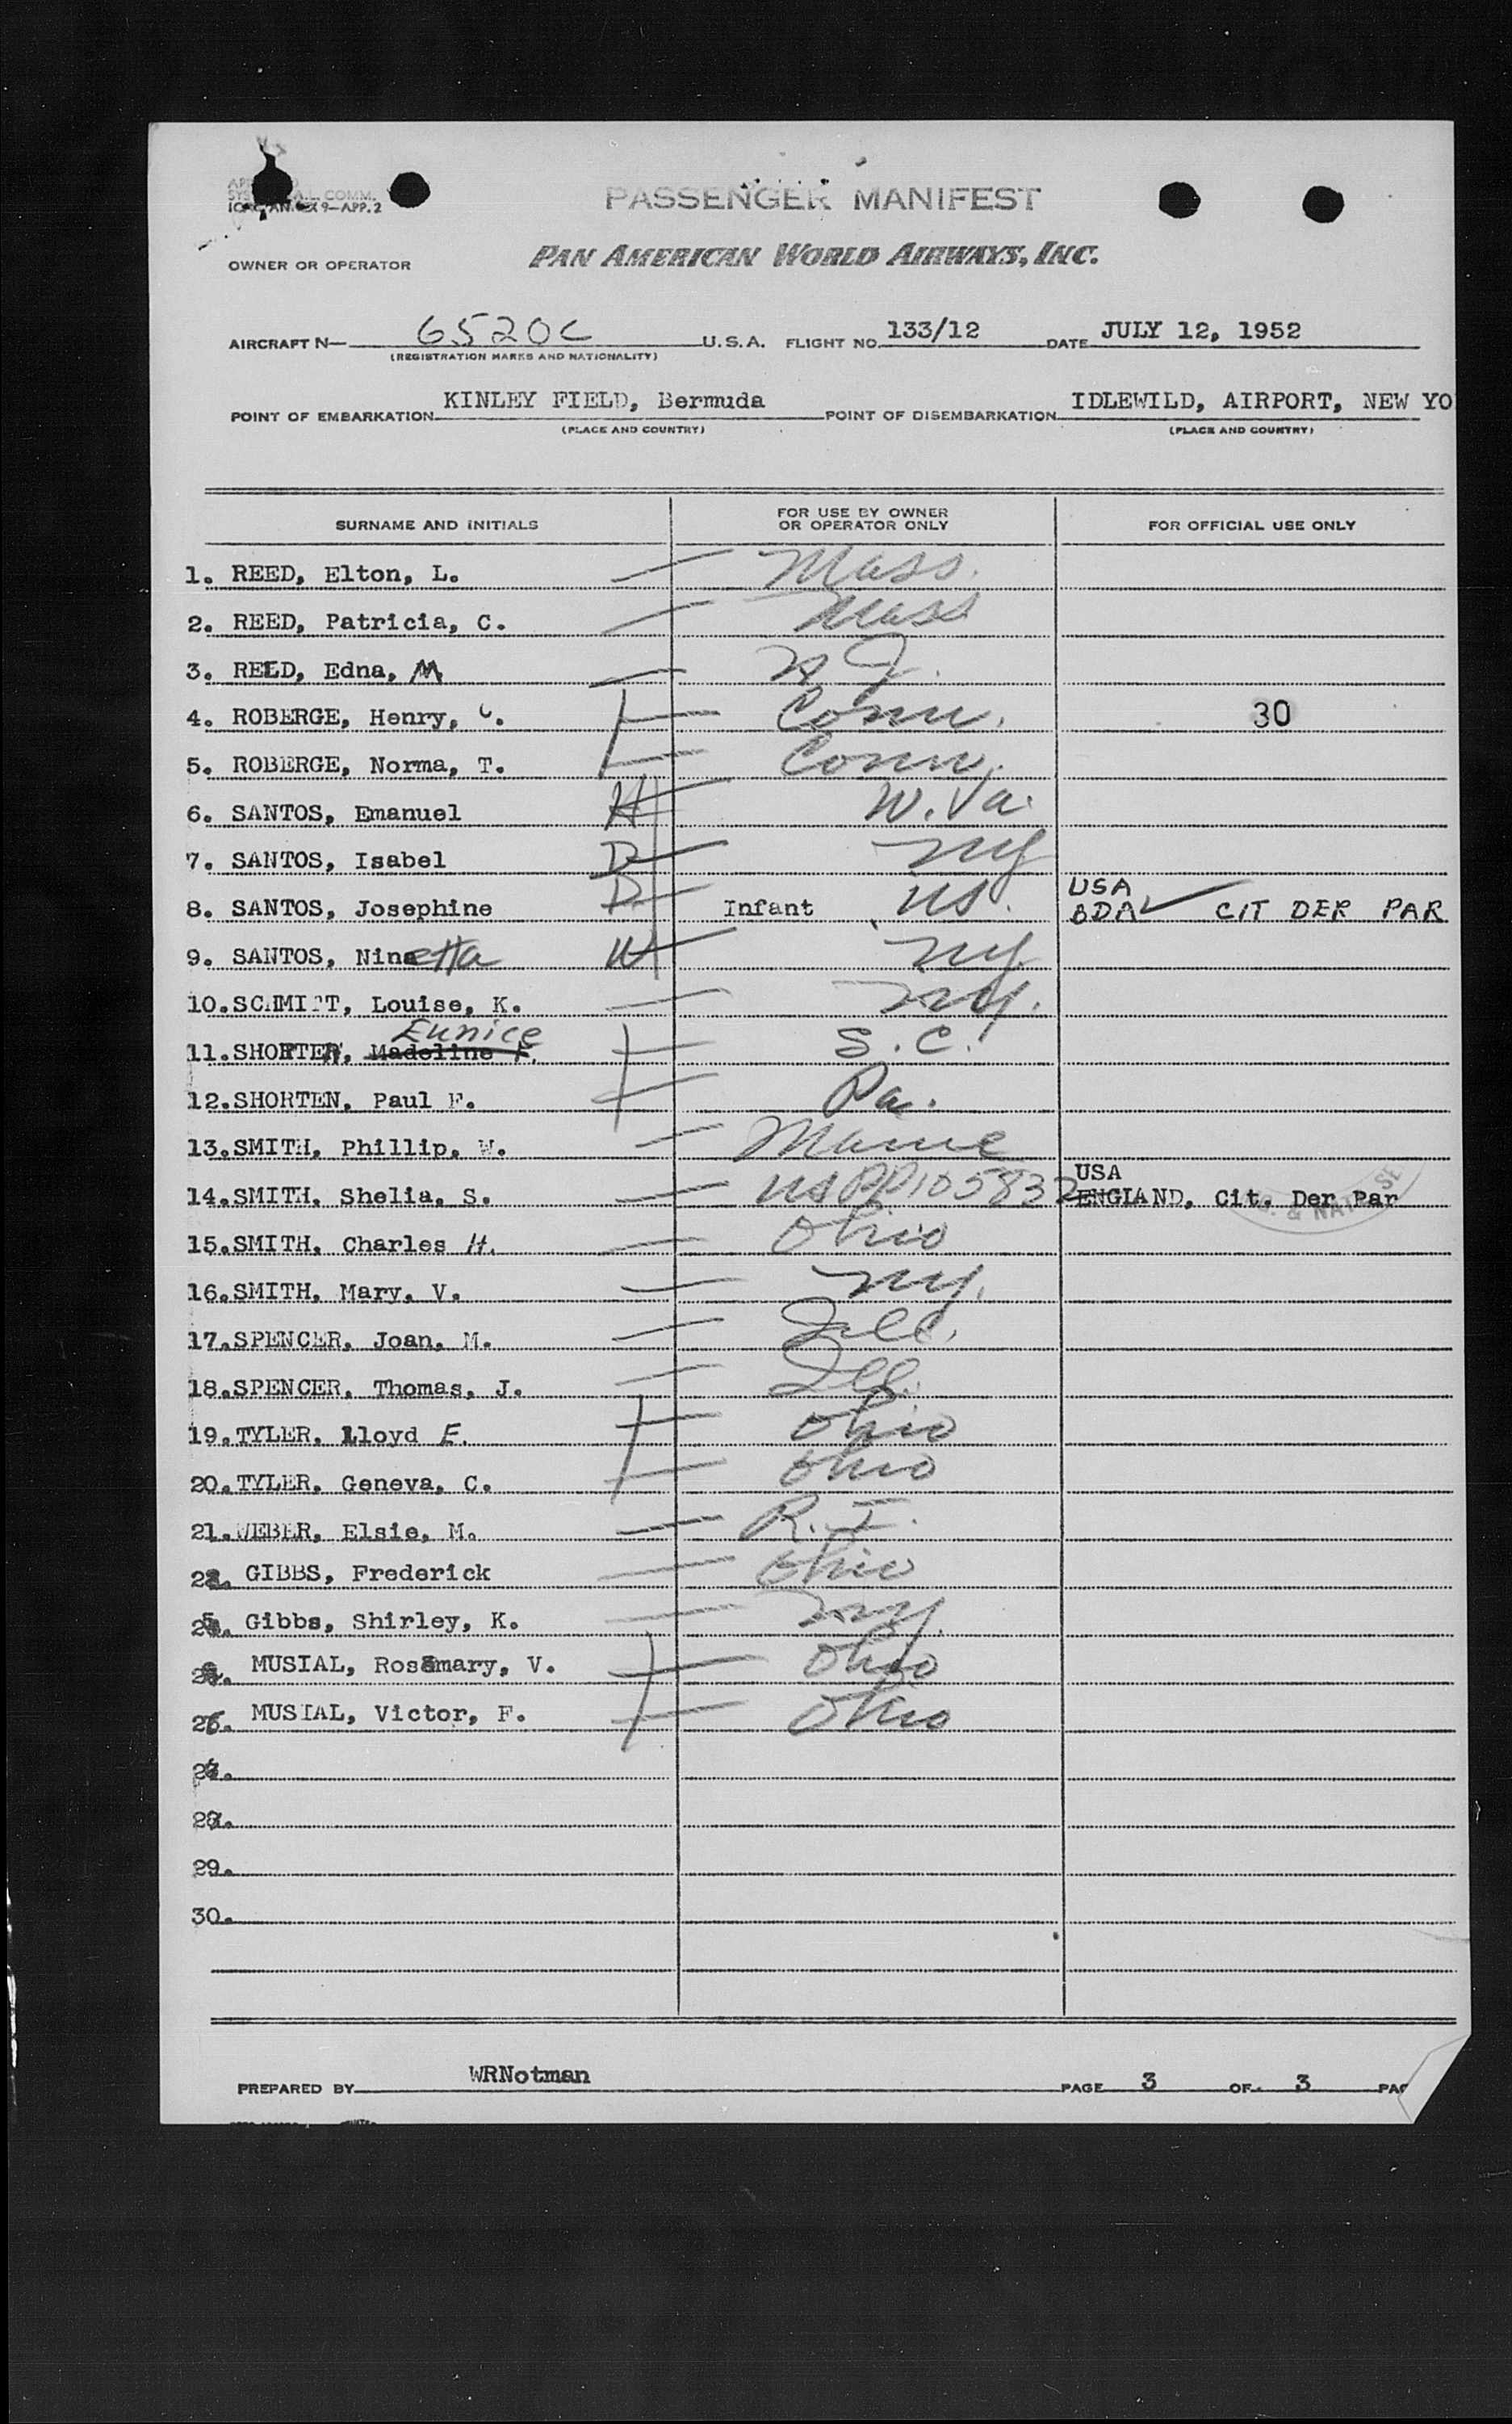 PASSENGER MANIFEST
COMM.
9—APP.2
OWNER OR OPERATOR PAN AMERICAN WORLD AIRWAYS, INC.
AIRCRAFT N— 6520C U.S.A. FLIGHT NO. 133/12 DATE JULY 12, 1952
(REGISTRATION MARKS AND NATIONALITY)
POINT OF EMBARKATION KINLEY FIELD, Bermuda POINT OF DISEMBARKATION IDLEWILD, AIRPORT, NEW YO
(PLACE AND COUNTRY) (PLACE AND COUNTRY)
SURNAME AND INITIALS FOR USE BY OWNER OR OPERATOR ONLY FOR OFFICIAL USE ONLY
1. REED, Elton, L. Mass.
2. REED, Patricia, C. Mass
3. REED, Edna, M N J.
4. ROBERGE, Henry, Conn. 30
5. ROBERGE, Norma, T. Conn.
6. SANTOS, Emanuel H W. Va.
7. SANTOS, Isabel D NY
USA
8. SANTOS, Josephine D Infant US. BDA CIT DER PAR
9. SANTOS, Ninetta W NY
10. SCHMIDT, Louise, K. NY.
Eunice
11. SHORTEN, Madeline F. S.C.
12. SHORTEN, Paul F. Pa.
13. SMITH, Phillip, W. Maine
USA
14. SMITH, Shelia, S. US PP105832 ENGLAND, Cit. Der Par
& NAT SE
15. SMITH, Charles H. Ohio
16. SMITH, Mary, V. NY.
17. SPENCER, Joan, M. Ill.
18. SPENCER, Thomas, J. Ill.
19. TYLER, Lloyd E. Ohio
20. TYLER, Geneva, C. Ohio
21. WEBER, Elsie, M. R.I.
GIBBS, Frederick Ohio
Gibbs, Shirley, K. NY.
MUSIAL, Rosemary, V. Ohio
MUSIAL, Victor, F. Ohio
29.
30.
PREPARED BY WRNotman PAGE 3 OF 3 PAG